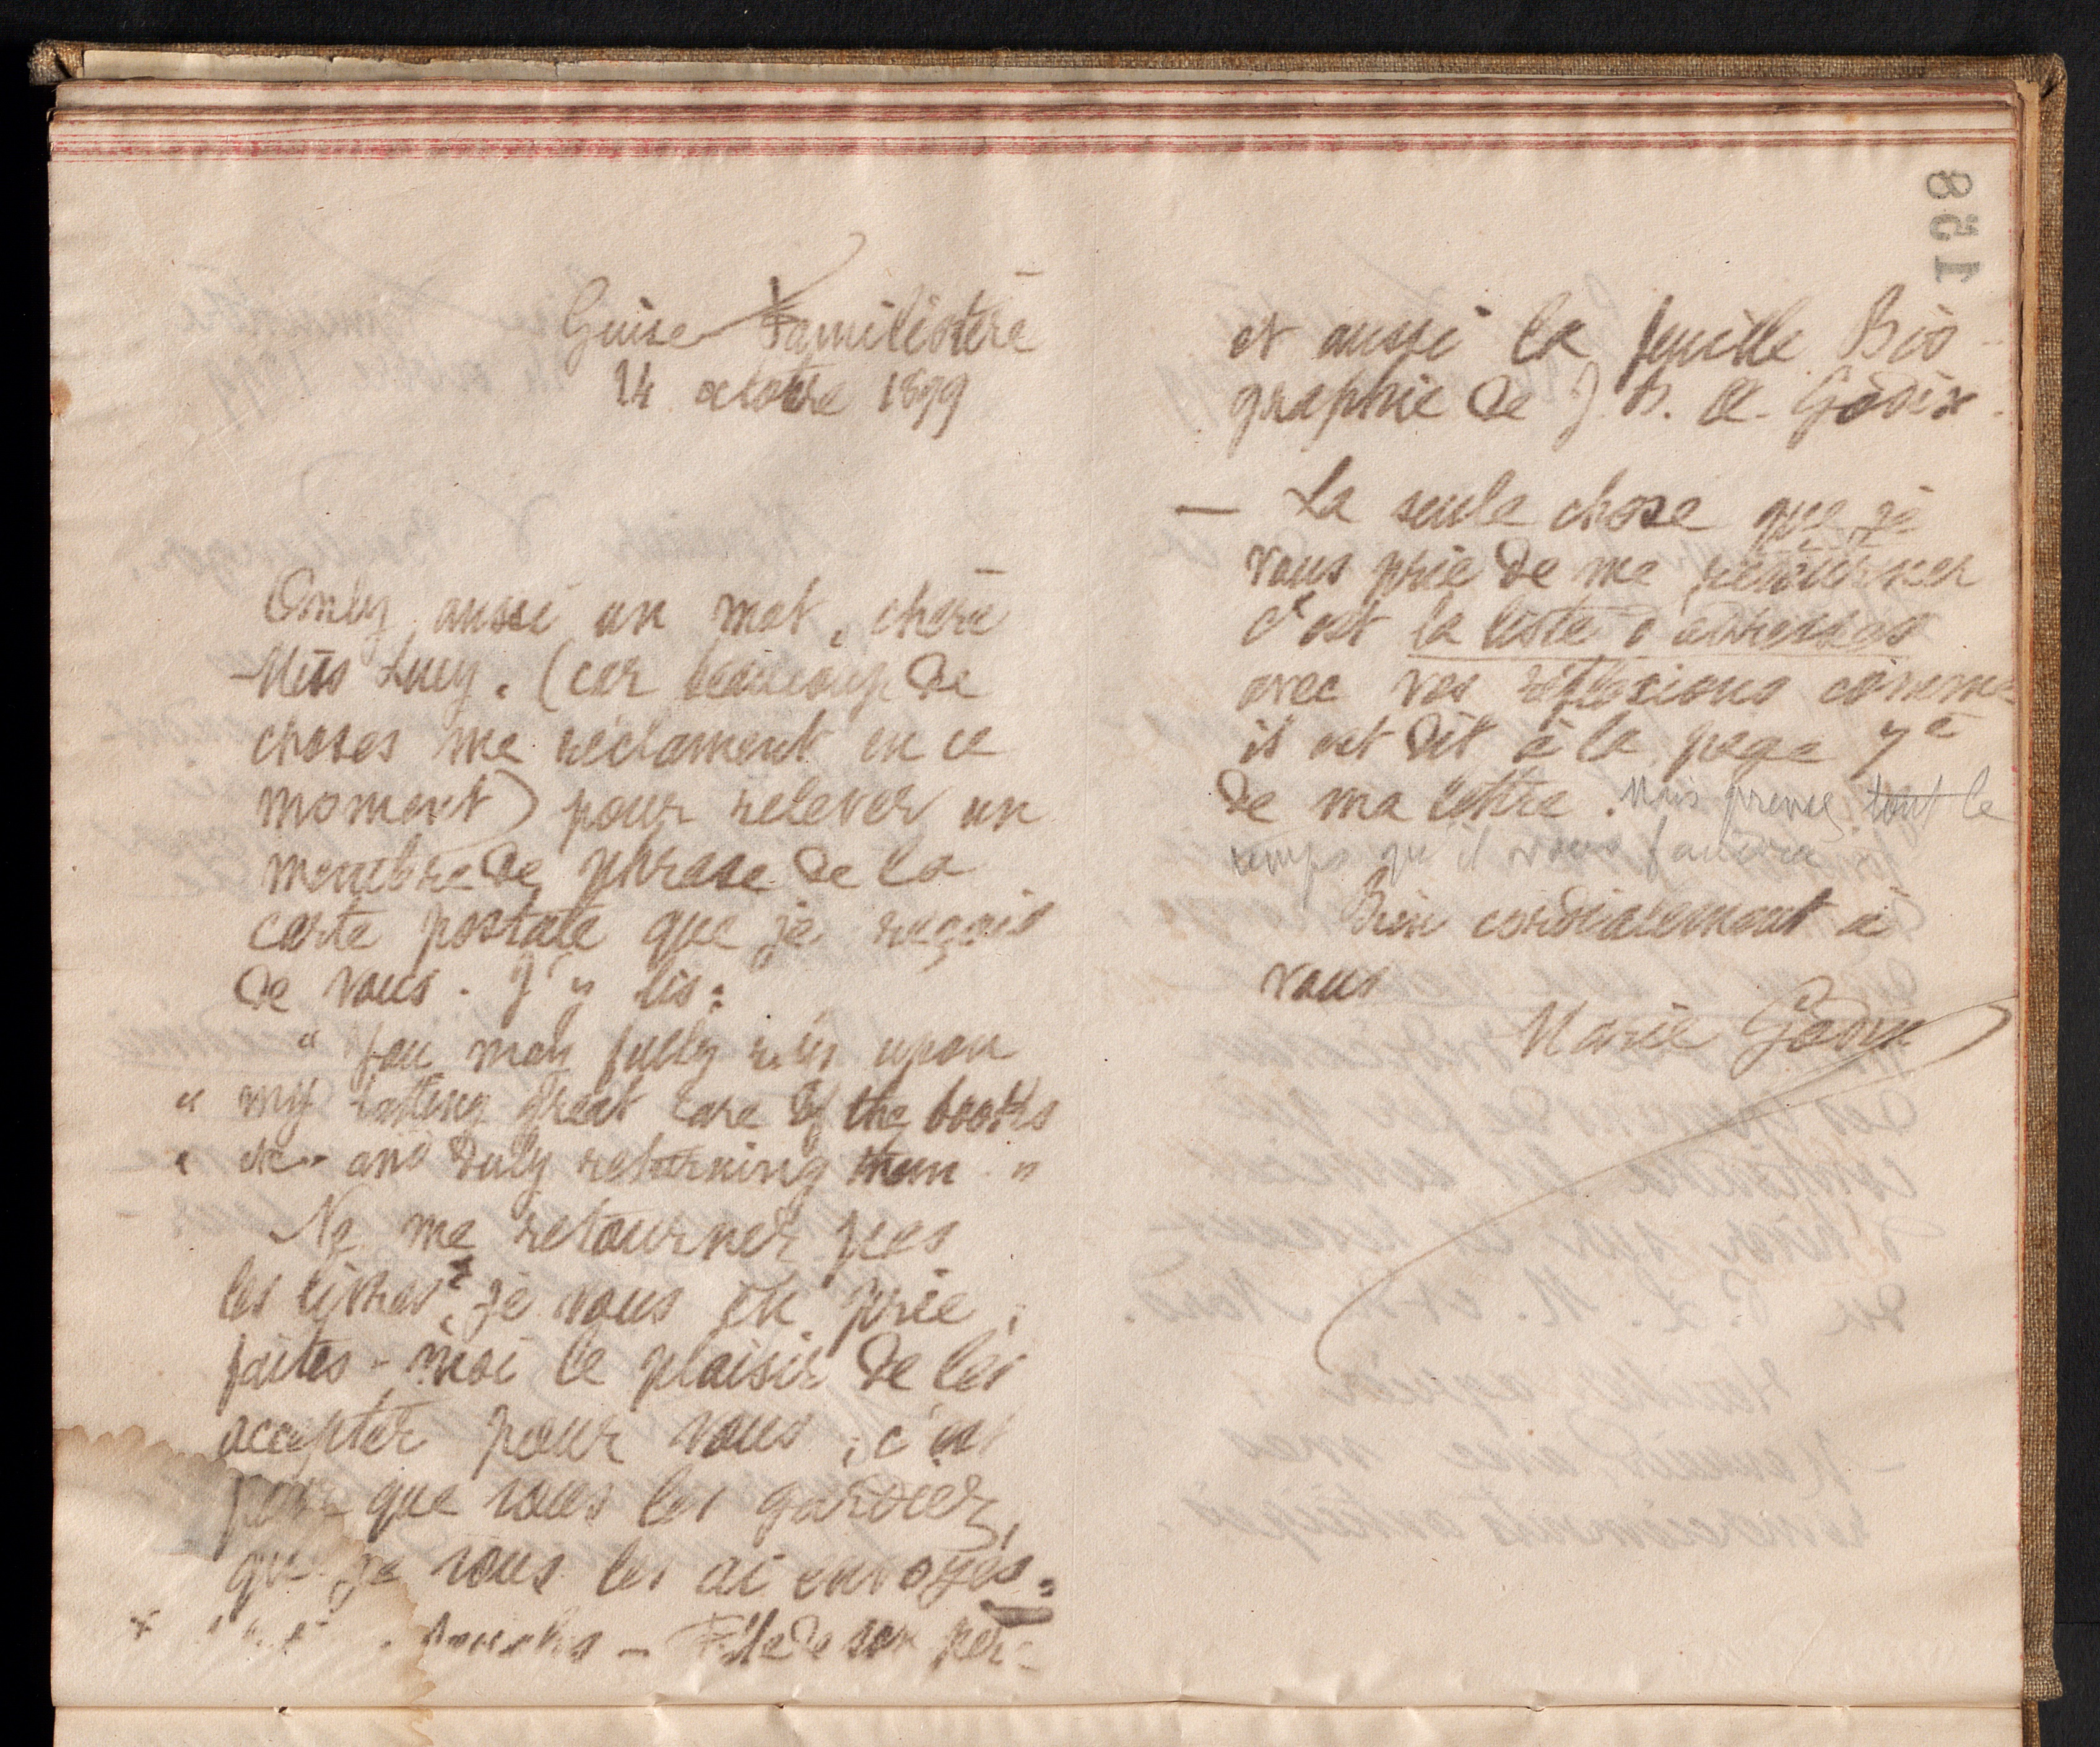 Guise Familistère
14 octobre 1899
Only aussi un mot, chère
Miss Lucy. (car beaucoup de
choses me réclament en ce
moment) pour relever un
membre de phrase de la
carte postale que je reçois
de vous. J'y lis :
" You may fully rely upon
" my taking great care of the books
" etc and duly returning them "
Ne me retournez pas
les livres, je vous en prie,
faites-moi le plaisir de les
accepter pour vous, c'est
pour que vous les gardiez,
que je vous les ai envoyés.
x Fête de son pér-
158
et aussi la feuille Bio-
graphie de J. B. A. Godin.
— La seule chose que je
vous prie de me retourner
c'est la liste d'adresses
avec vos réflexions comme
il est dit à la page 7e
de ma lettre. Mais prenez tout le
temps qu'il vous faudra
Bien cordialement à
vous
Marie Godin